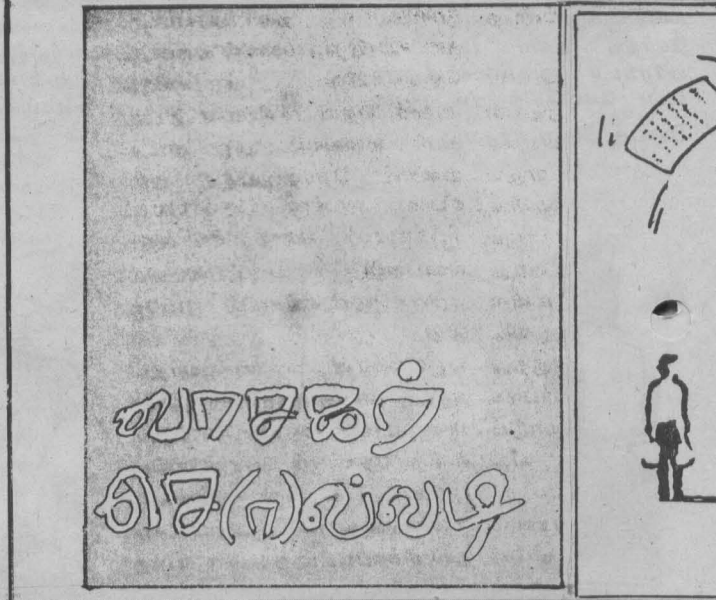 வாசகர்
செ(ா)ல்லடி